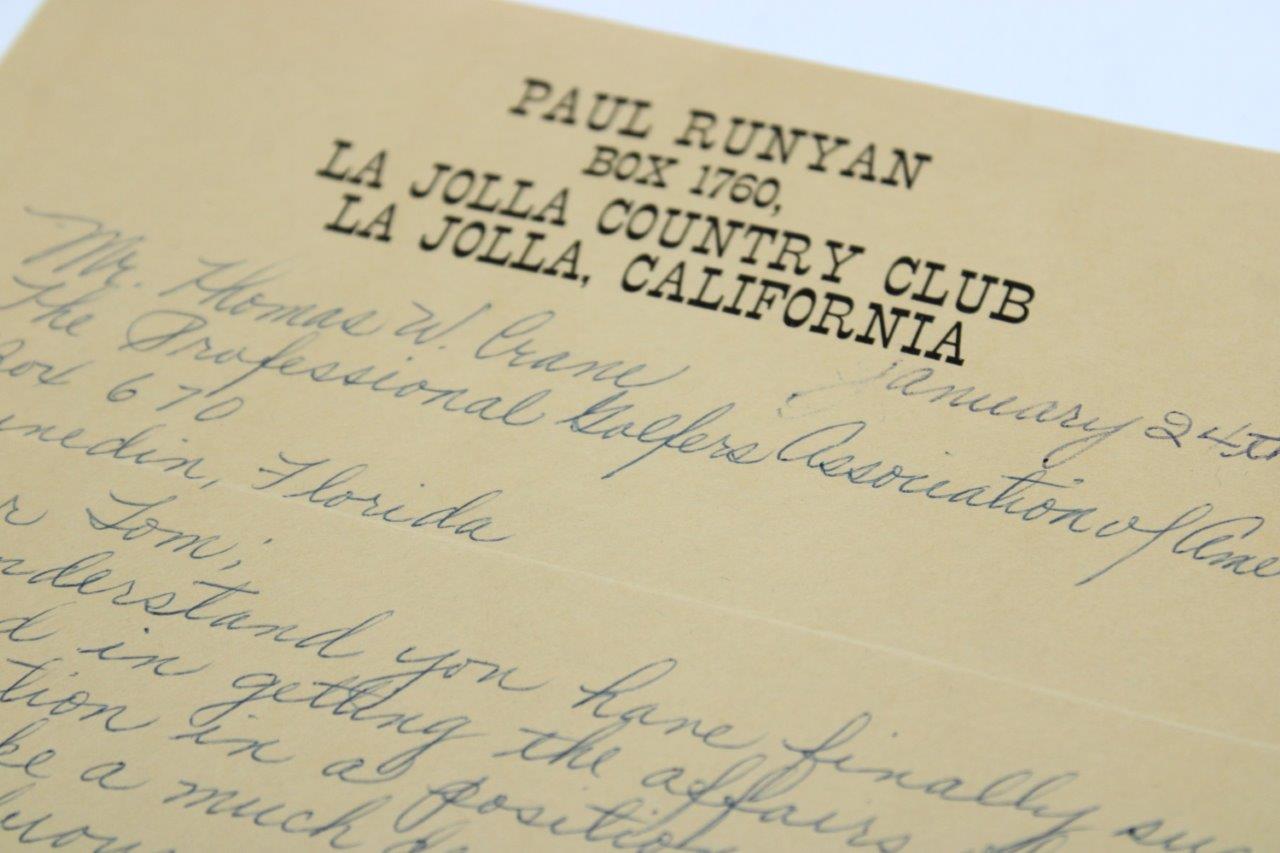 PAUL RUNYAN
BOX 1760,
LA JOLLA COUNTRY CLUB
LA JOLLA, CALIFORNIA
January 24th
Mr. Thomas W. Crane
The Professional Golfers Association of Ame
Box 670
unedin, Florida
r Tom;
nderstand you have finally suc
d in getting the affairs
tion in a position
ke a much de